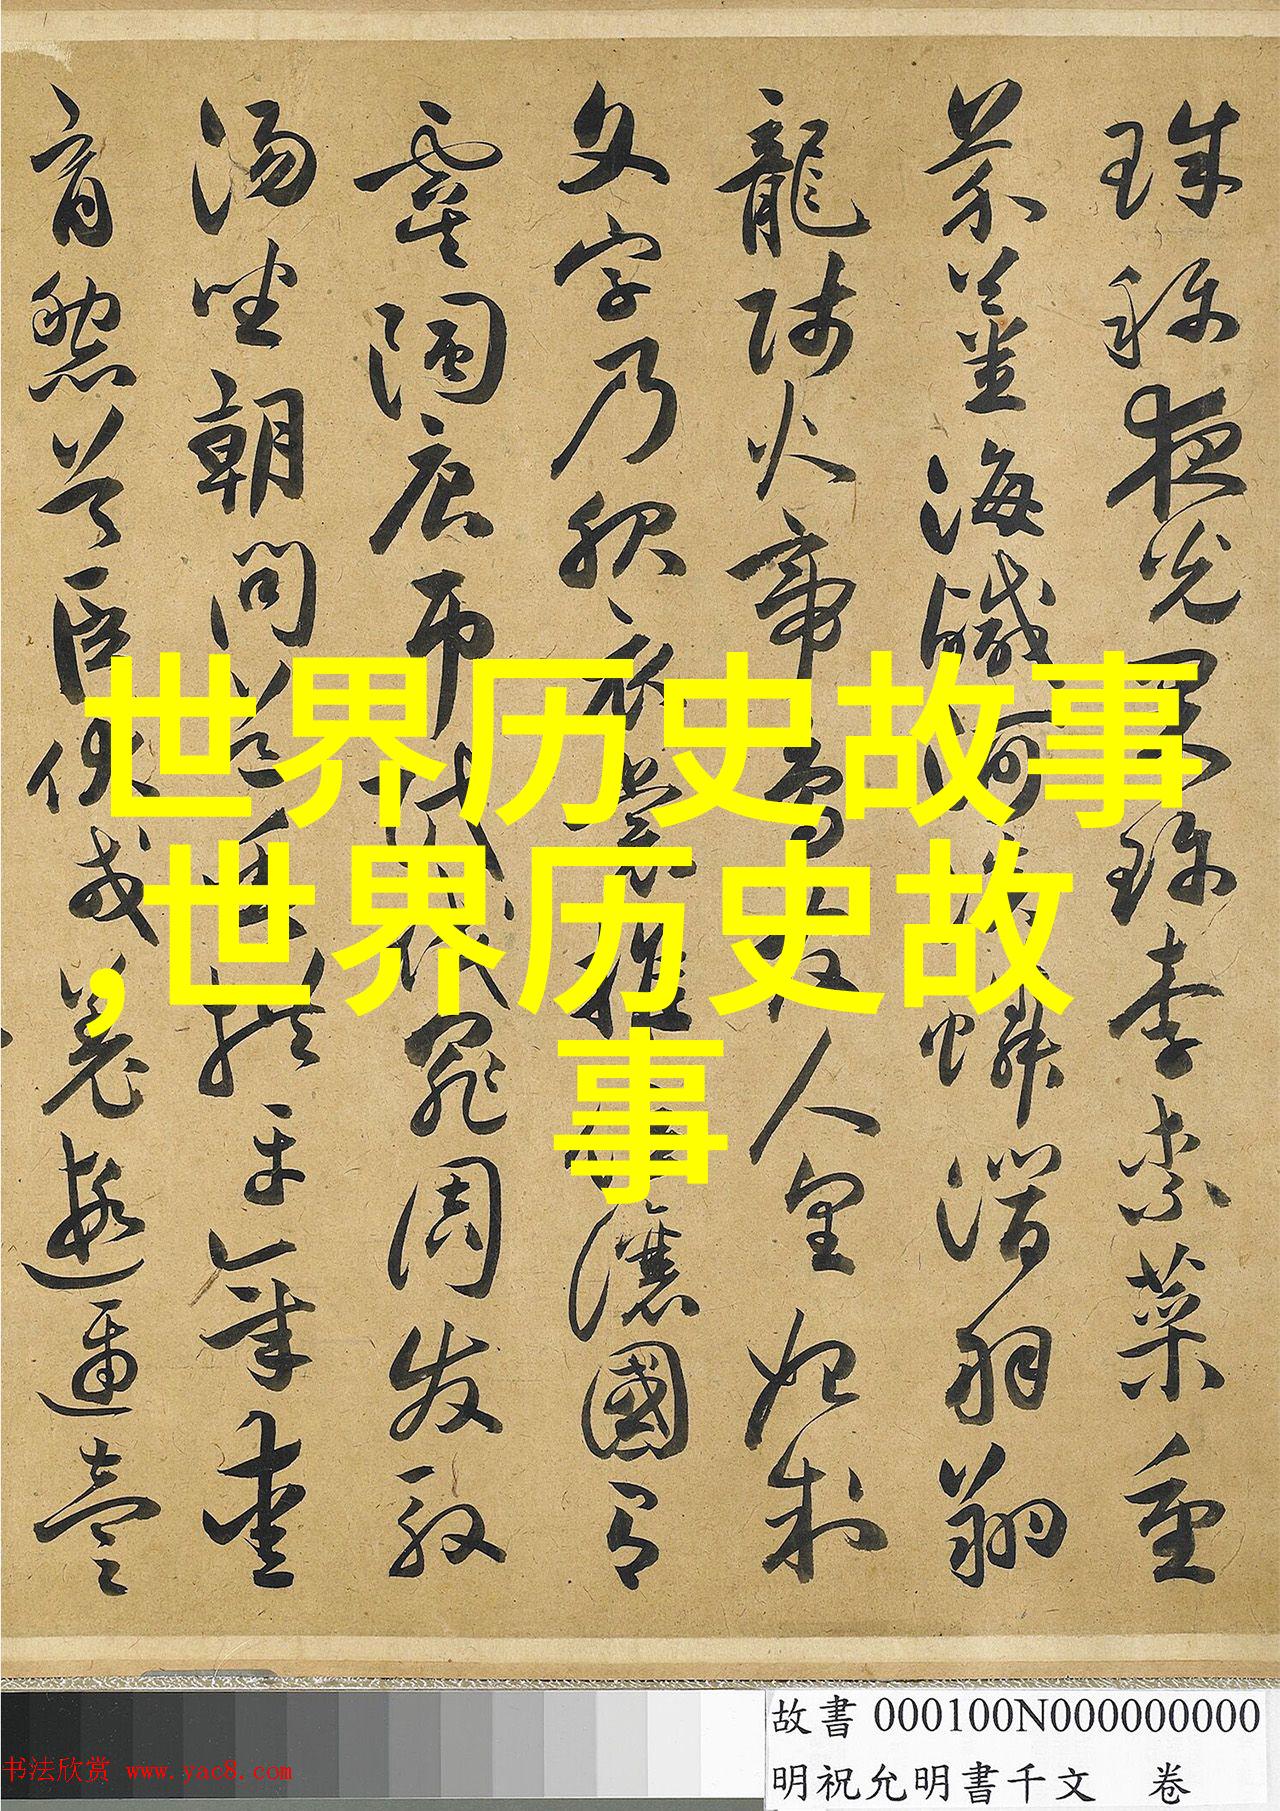 珠称夜光果珍李柰菜重
芥薑海鹹河淡鱗潛羽翔
龍師火帝鳥官人皇始制
文字乃服衣裳推位讓國有
虞陶唐弔民伐罪周发殷
湯坐朝問道垂拱平章愛
育黎首臣伏戎羌遐邇壹
世界历史故事
,世界历史故
事
故書 000100N000000000
明祝允明書千文 卷
书法欣赏 www.yac8.com